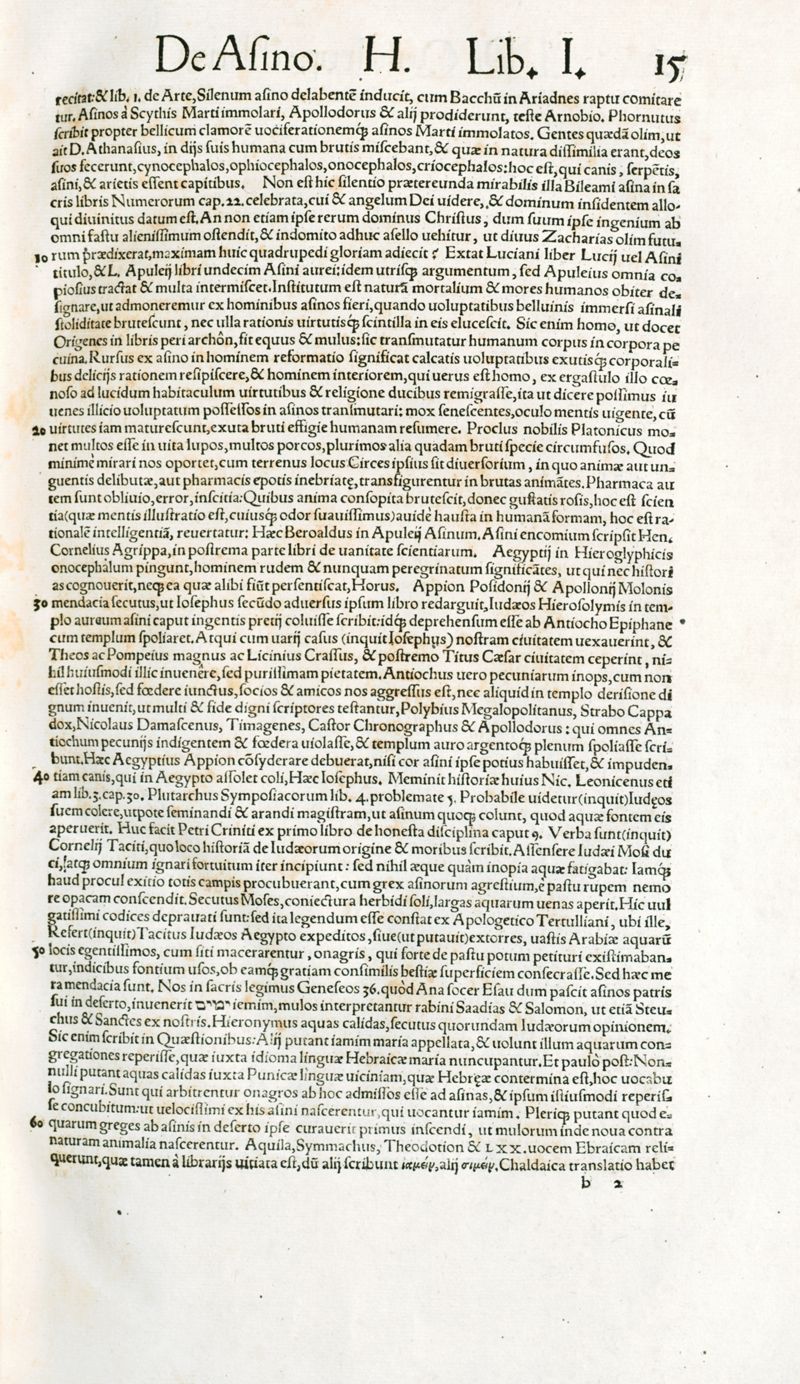 De Asino. H. Lib. I. 15
recitat:& lib. 1. de Arte,Silenum asino delabentē inducit, cum Bacchū in Ariadnes raptu comitare
tur. Asinos à Scythis Marti immolari, Apollodorus & alij prodiderunt, teste Arnobio. Phornutus
scribit propter bellicum clamorē uociferationemq́; asinos Marti immolatos. Gentes quædā olim,ut
ait D. Athanasius, in dijs suis humana cum brutis miscebant,& quæ in natura dissimilia erant,deos
suos fecerunt,cynocephalos,ophiocephalos,onocephalos,criocephalos:hoc est,qui canis, serpētis,
asini,& arietis essent capitibus. Non est hic silentio prætereunda mirabilis illa Bileami asina in sa
cris libris Numerorum cap.22. celebrata,cui & angelum Dei uidere, & dominum insidentem allo-
qui diuinitus datum est. An non etiam ipse rerum dominus Christus, dum suum ipse ingenium ab
omni fastu alienissimum ostendit,& indomito adhuc asello uehitur, ut diuus Zacharias olim futu-
10 rum prædixerat,maximam huic quadrupedi gloriam adiecit? Extat Luciani liber Lucij uel Asini
titulo,& L. Apuleij libri undecim Asini aurei:idem utrisq́; argumentum, sed Apuleius omnia co-
piosius tractat & multa intermiscet.Institutum est naturā mortalium & mores humanos obiter de-
signare,ut admoneremur ex hominibus asinos fieri,quando uoluptatibus belluinis immersi asinali
stoliditate brutescunt, nec ulla rationis uirtutisq́; scintilla in eis elucescit. Sic enim homo, ut docet
Origenes in libris peri archôn,fit equus & mulus:sic transmutatur humanum corpus in corpora pe
cuina. Rursus ex asino in hominem reformatio significat calcatis uoluptatibus exutisq́; corporali-
bus delicijs rationem resipiscere,& hominem interiorem,qui uerus est homo, ex ergastulo illo cœ-
noso ad lucidum habitaculum uirtutibus & religione ducibus remigrasse,ita ut dicere possimus iu
uenes illicio uoluptatum possessos in asinos transmutari: mox senescentes,oculo mentis uigente, cū
20 uirtutes iam maturescunt,exuta bruti effigie humanam resumere. Proclus nobilis Platonicus mo-
net multos esse in uita lupos,multos porcos,plurimos alia quadam bruti specie circumfusos. Quod
minimè mirari nos oportet,cum terrenus locus Circes ipsius sit diuersorium, in quo animæ aut un-
guentis delibutæ,aut pharmacis epotis inebriatę,transfigurentur in brutas animātes.Pharmaca au
tem sunt obliuio,error,inscitia:Quibus anima consopita brutescit,donec gustatis rosis,hoc est scien
tia(quæ mentis illustratio est,cuiusq́; odor suauissimus)auidè hausta in humanā formam, hoc est ra-
tionalē intelligentiā, reuertatur: Hæc Beroaldus in Apuleij Asinum. Asini encomium scripsit Hen.
Cornelius Agrippa,in postrema parte libri de uanitate scientiarum. Aegyptij in Hieroglyphicis
onocephalum pingunt,hominem rudem & nunquam peregrinatum significātes, ut qui nec histori
as cognouerit,neq́; ea quæ alibi fiūt persentiscat, Horus. Appion Posidonij & Apollonij Molonis
30 mendacia secutus,ut Iosephus secūdo aduersus ipsum libro redarguit,Iudæos Hierosolymis in tem-
plo aureum asini caput ingentis pretij coluisse scribit:idq́; deprehensum esse ab Antiocho Epiphane
cum templum spoliaret. Atqui cum uarij casus (inquit Iosephus) nostram ciuitatem uexauerint, &
Theos ac Pompeius magnus ac Licinius Crassus, & postremo Titus Cæsar ciuitatem ceperint, ni-
hil huiusmodi illic inuenere, sed purissimam pietatem. Antiochus uero pecuniarum inops, cum non
esset hostis,sed fœdere iunctus,socios & amicos nos aggressus est,nec aliquid in templo derisione di
gnum inuenit,ut multi & fide digni scriptores testantur,Polybius Megalopolitanus, Strabo Cappa
dox,Nicolaus Damascenus, Timagenes, Castor Chronographus & Apollodorus: qui omnes An-
tiochum pecunijs indigentem & fœdera uiolasse,& templum auro argentoq́; plenum spoliasse scri-
bunt.Hæc Aegyptius Appion cōsyderare debuerat,nisi cor asini ipse potius habuisset,& impuden-
40 tiam canis,qui in Aegypto assolet coli,Hæc Iosephus. Meminit historiæ huius Nic. Leonicenus eti
am lib.3.cap.30. Plutarchus Symposiacorum lib. 4. problemate 5. Probabile uidetur(inquit)Iudęos
suem colere,utpote seminandi & arandi magistram,ut asinum quoq́; colunt, quod aquæ fontem eis
aperuerit. Huc facit Petri Criniti ex primo libro de honesta disciplina caput 9. Verba sunt(inquit)
Cornelij Taciti,quo loco historiā de Iudæorum origine & moribus scribit. Assensere Iudæi Mosi du
ci, atq́; omnium ignari fortuitum iter incipiunt: sed nihil æque quàm inopia aquæ fatigabat: Iamq́;
haud procul exitio totis campis procubuerant,cum grex asinorum agrestium,è pastu rupem nemo
re opacam conscendit. Secutus Moses,coniectura herbidi soli,largas aquarum uenas aperit. Hic uul
gatissimi codices deprauati sunt:sed ita legendum esse constat ex Apologetico Tertulliani, ubi ille,
Refert(inquit)Tacitus Iudæos Aegypto expeditos,siue(ut putauit)extorres, uastis Arabiæ aquarū
50 locis egentissimos, cum siti macerarentur, onagris, qui forte de pastu potum petituri existimaban-
tur,indicibus fontium usos,ob eamq́; gratiam consimilis bestiæ superficiem consecrasse. Sed hæc me
ra mendacia sunt. Nos in sacris legimus Geneseos 36. quòd Ana socer Esau dum pascit asinos patris
sui in deserto,inuenerit ימים iemim,mulos interpretantur rabini Saadias & Salomon, ut etiā Steu-
chus & Sanctes ex nostris. Hieronymus aquas calidas,secutus quorundam Iudæorum opinionem.
Sic enim scribit in Quæstionibus: Alij putant iamim maria appellata,& uolunt illum aquarum con-
gregationes reperisse,quæ iuxta idioma linguæ Hebraicæ maria nuncupantur. Et paulò post: Non-
nulli putant aquas calidas iuxta Punicæ linguæ uiciniam,quæ Hebręæ contermina est,hoc uocabu
lo signari. Sunt qui arbitrentur onagros ab hoc admissos esse ad asinas,& ipsum istiusmodi reperis-
se concubitum:ut uelocissimi ex his asini nascerentur,qui uocantur iamim. Pleriq́; putant quod e-
60 quarum greges ab asinis in deserto ipse curauerit primus inscendi, ut mulorum inde noua contra
naturam animalia nascerentur. Aquila,Symmachus, Theodotion & LXX. uocem Ebraicam reli-
querunt,quæ tamen à librarijs uitiata est,dū alij scribunt ιαμείν,alij σιμείν. Chaldaica translatio habet
b 2